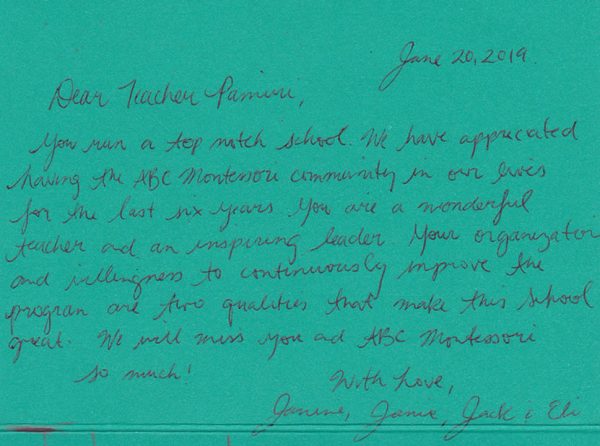 June 20, 2019.
Dear Teacher Pamini,
You run a top notch school. We have appreciated
having the ABC Montessori community in our lives
for the last six years. You are a wonderful
teacher and an inspiring leader. Your organization
and willingness to continuously improve the
program are two qualities that make this school
great. We will miss you and ABC Montessori
so much!
With Love,
Janine, Jamie, Jack & Eli